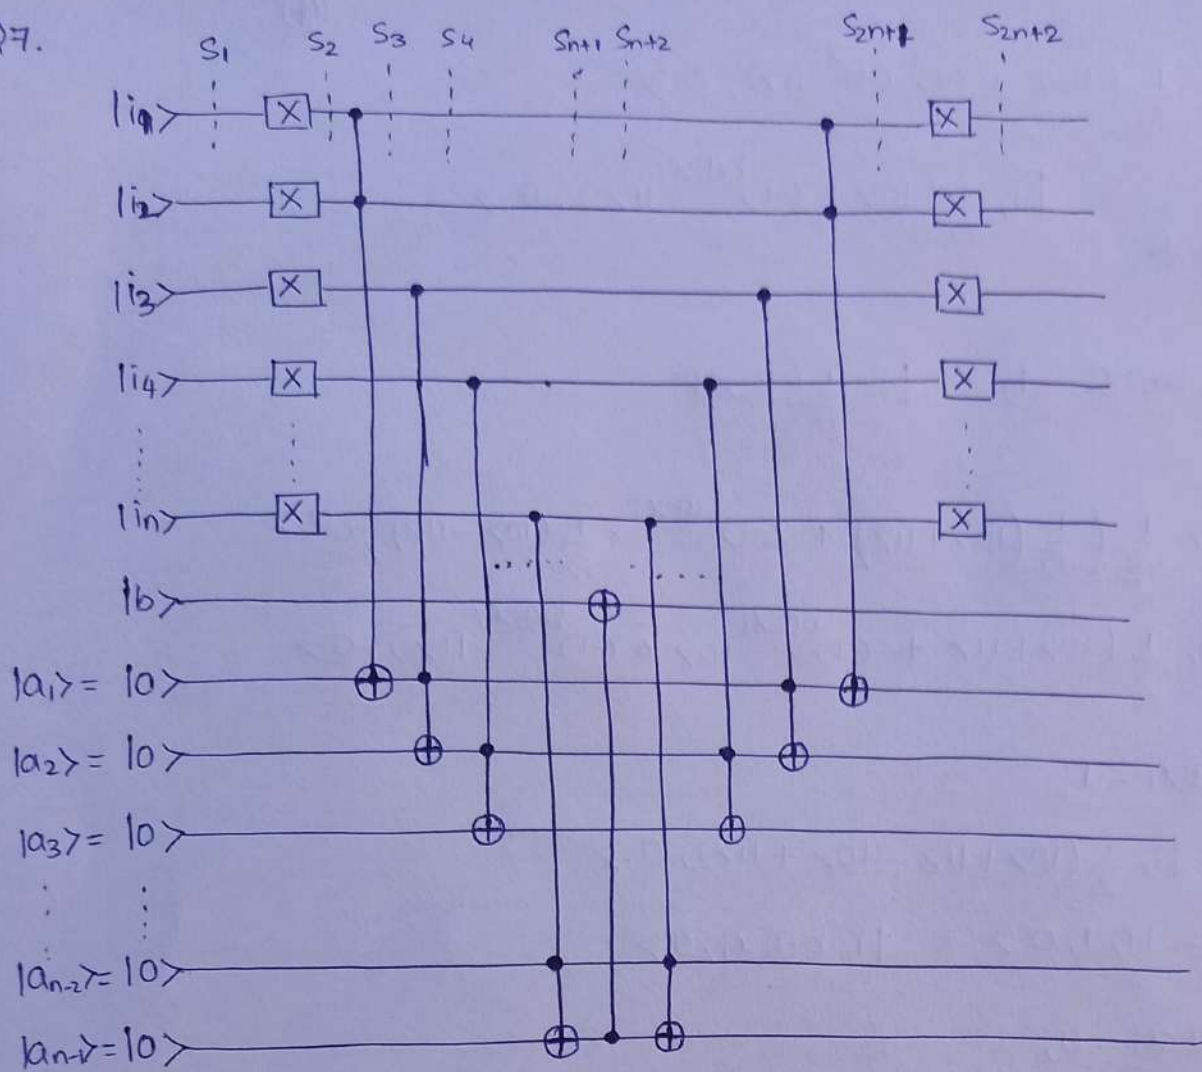 Q7.
S1 S2 S3 S4 Sn+1 Sn+2 S2n+1 S2n+2
|i1> X X
|i2> X X
|i3> X X
|i4> X X
|in> X X
|b>
|a1> = |0>
|a2> = |0>
|a3> = |0>
|an-2> = |0>
|an-1> = |0>